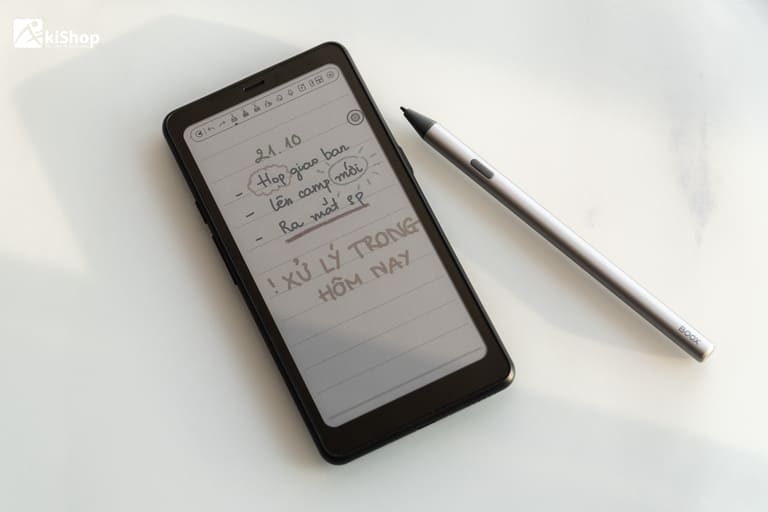 AkiShop
21.10
- Họp giao ban
- lên camp mới
- Ra mắt SP
! XỬ LÝ TRONG
HÔM NAY
BOOX